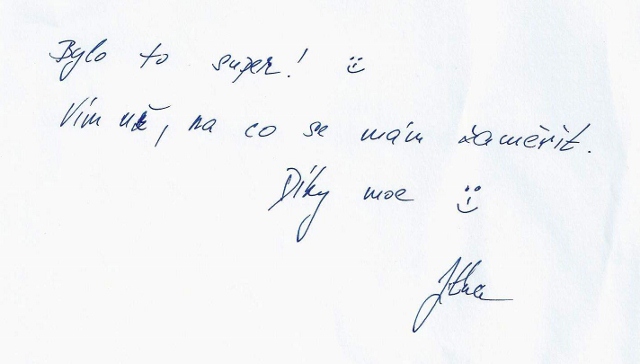 Bylo to super! :)
Vím už, na co se mám zaměřit.
Díky moc :)
Jitka